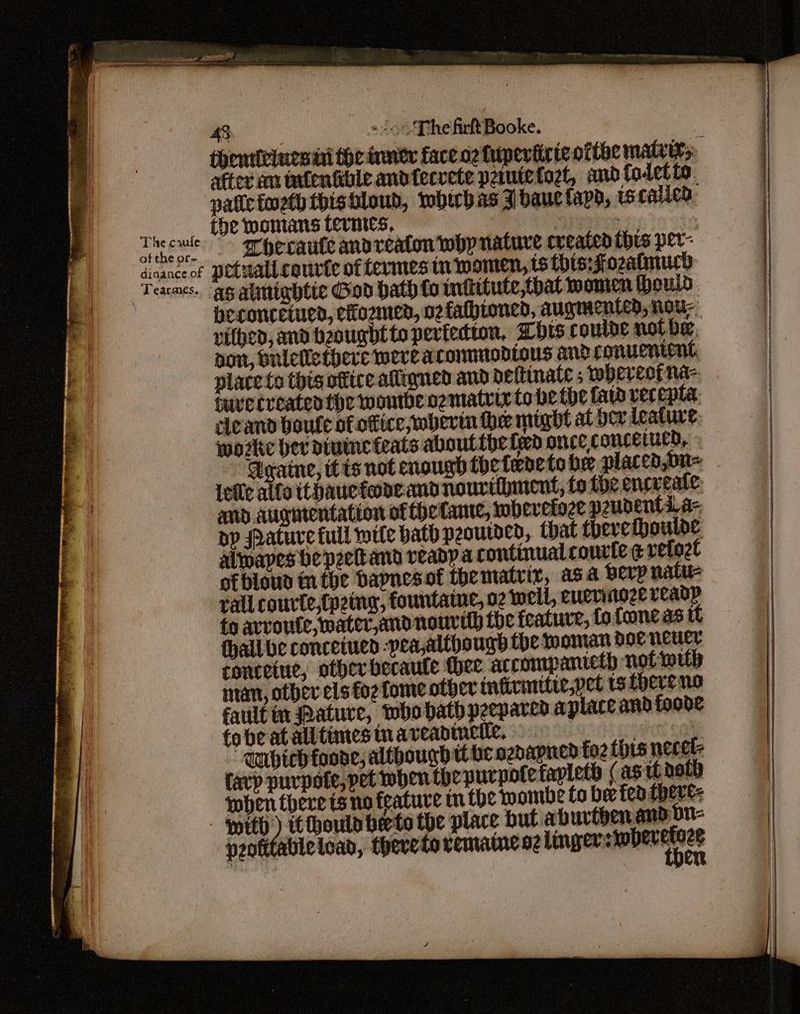 48 The first Booke.
themselues in the inner face or superficie of the matrix,
after an insensible and secrete priuie sort, and so let to
passe forth this bloud, which as I haue sayd, is called
the womans termes.
The cause
of the or-
dinance of
Tearmes.
The cause and reason why nature created this per-
petuall course of termes in women, is this: Forasmuch
as almightie God hath so institute, that women should
be conceiued, efformed, or fashioned, augmented, nou-
rished, and brought to perfection. This coulde not bee
don, vnlesse there were a commodious and conuenient
place to this office assigned and destinate ; whereof na-
ture created the wombe or matrix to be the said recepta
cle and house of office, wherin shee might at her leasure
worke her diuine feats about the seed once conceiued.
Againe, it is not enough the seede to bee placed, vn-
lesse also it haue foode and nourishment, to the encrease
and augmentation of the same, wherefore prudent La-
dy Nature full wise hath prouided, that there shoulde
alwayes be prest and ready a continual course & resort
of bloud in the vaynes of the matrix, as a very natu-
rall course, spring, fountaine, or well, euermore ready
to arrouse, water, and nourish the feature, so soone as it
shall be conceiued : yea, although the woman doe neuer
conceiue, other because shee accompanieth not with
man, other els for some other infirmitie, yet is there no
fault in Nature, who hath prepared a place and foode
to be at all times in a readinesse.
Which foode, although it be ordayned for this neces-
sary purpose, yet when the purpose fayleth ( as it doth
when there is no feature in the wombe to bee fed there-
with ) it should bee to the place but a burthen and vn-
profitable load, there to remaine or linger : wherefore
then